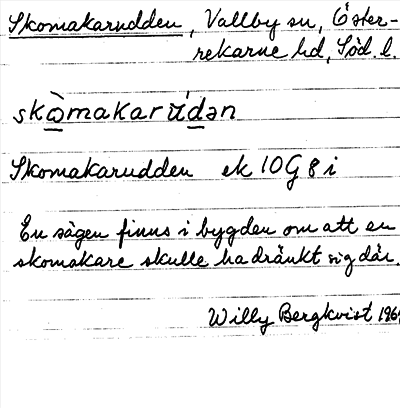 Skomakarudden, Vallby sn, Öster-
rekarne hd, Söd. l.
skòmakarúdən
Skomakarudden ek 10G 8 i
En sägen finns i bygden om att en
skomakare skulle ha dränkt sig där.
Willy Bergkvist